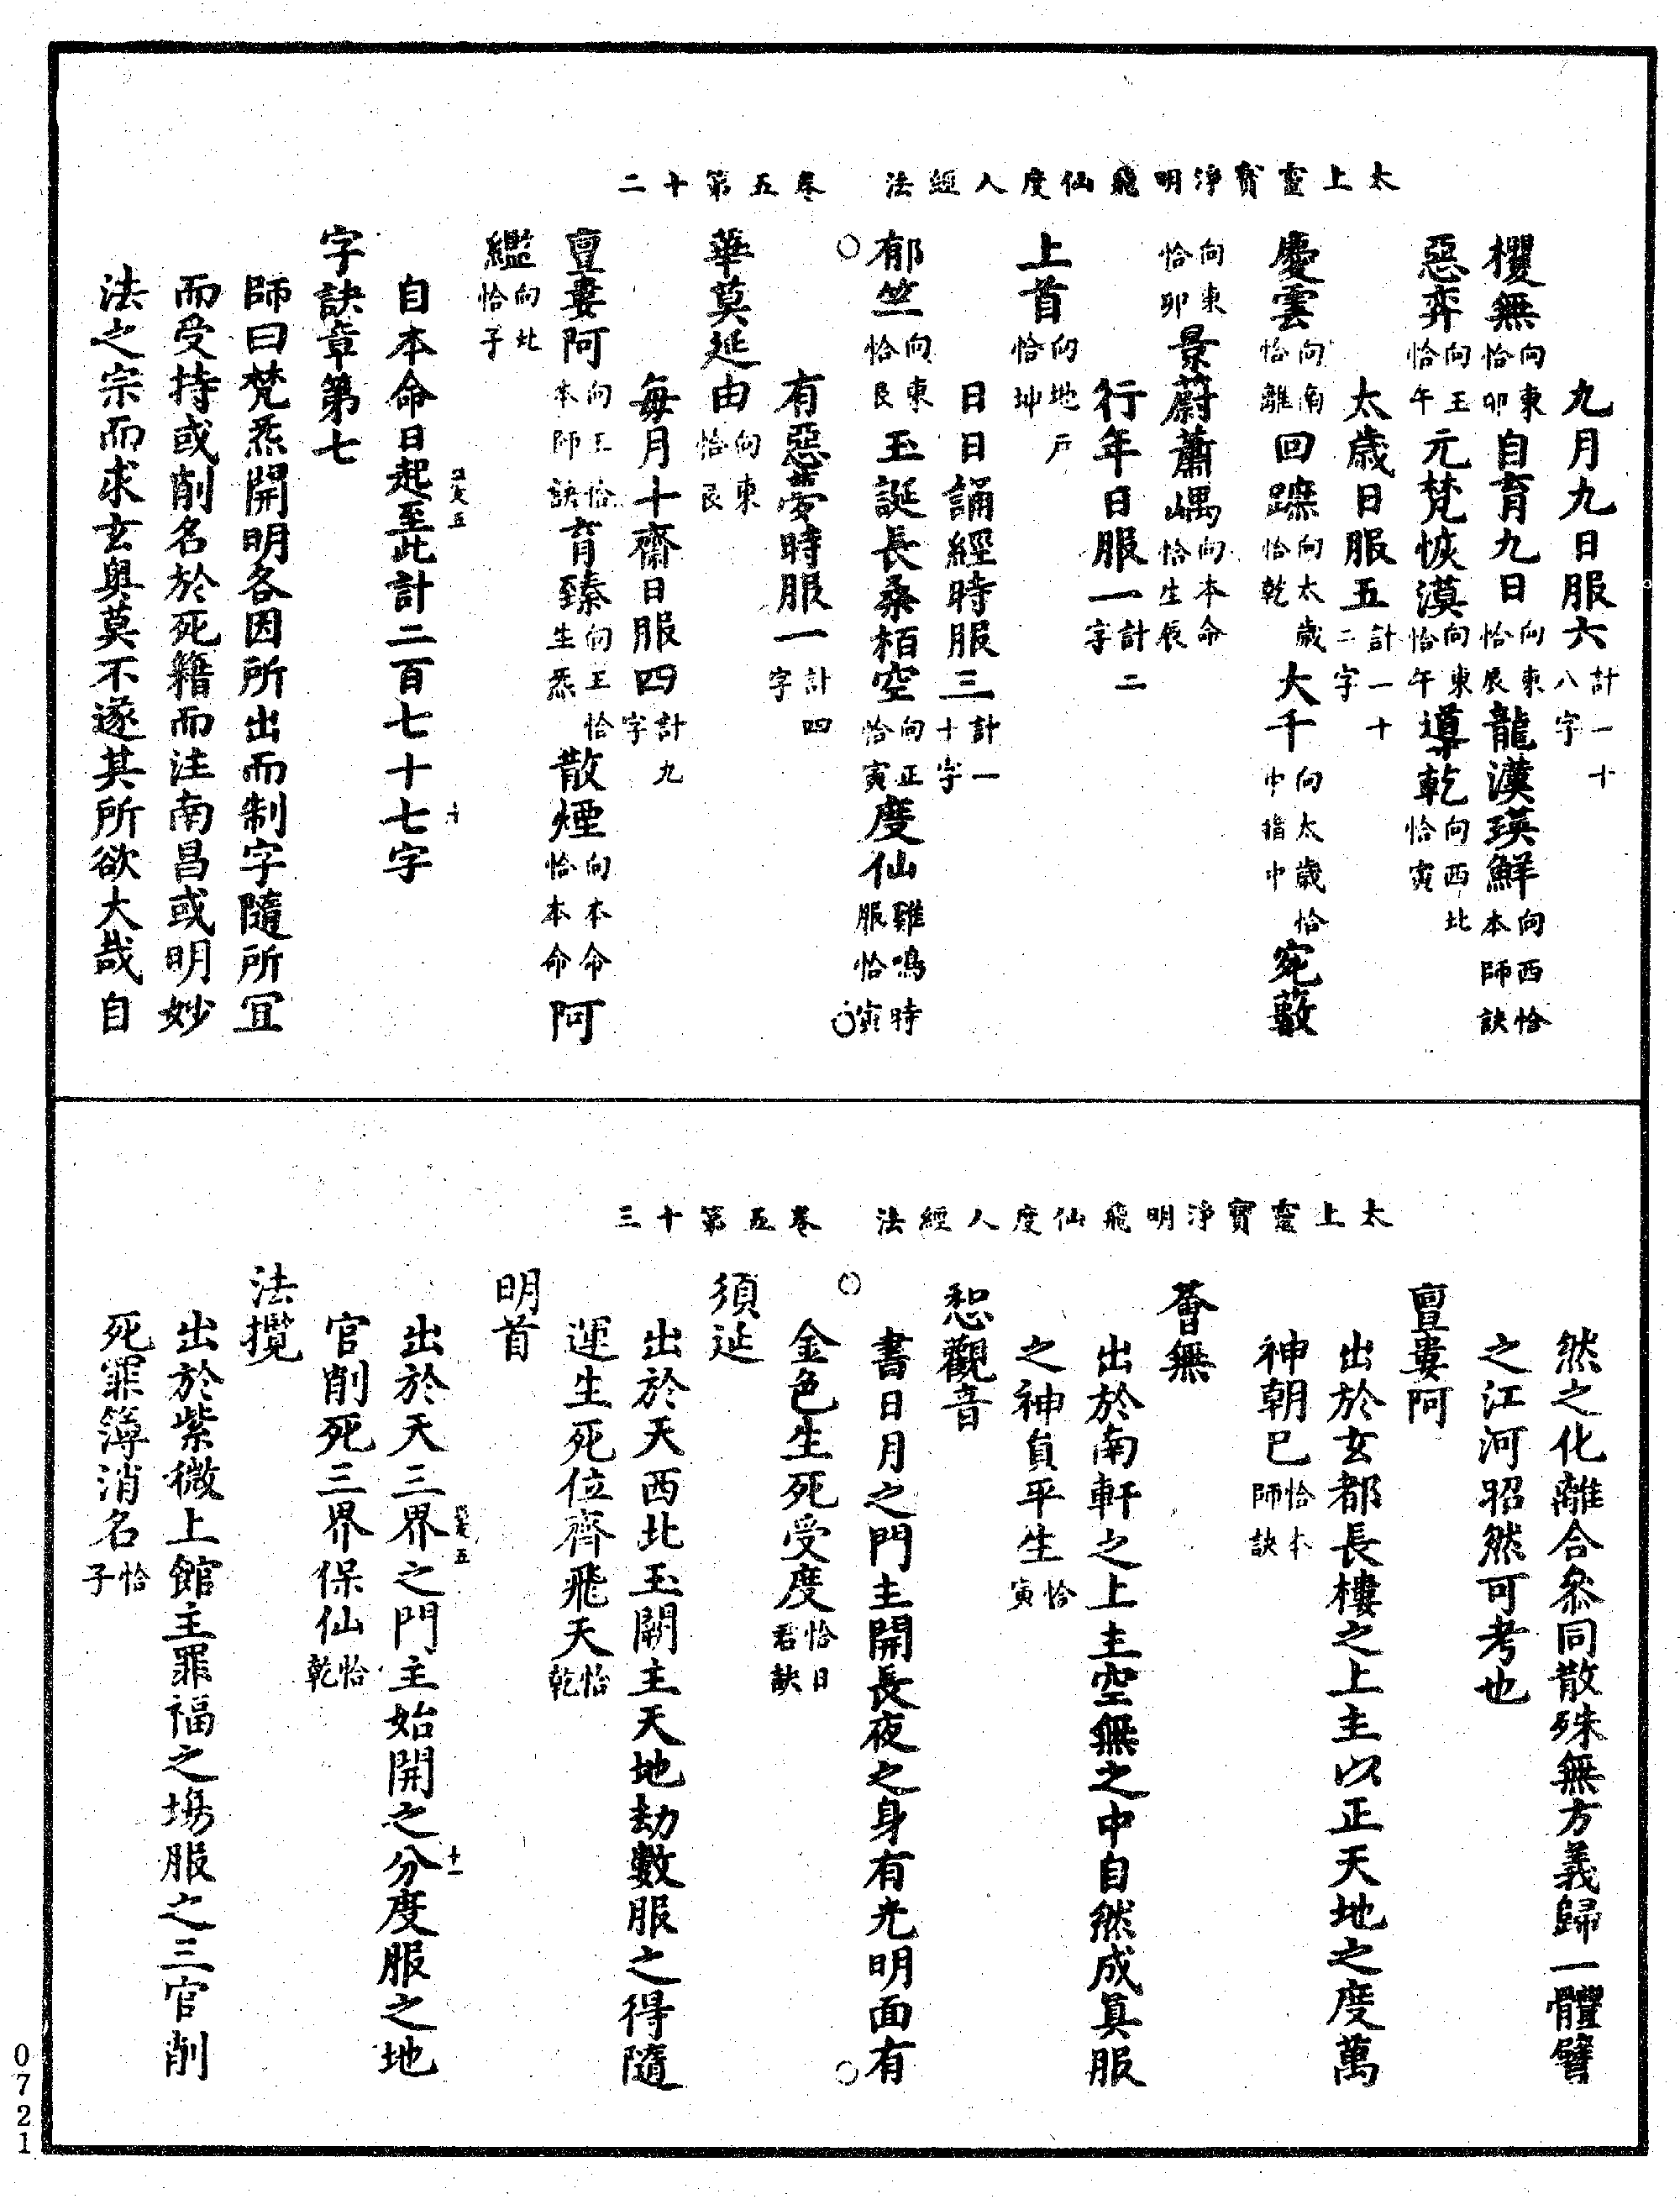 太上靈寶淨明飛仙度人經法　卷五第十二
九月九日服六計一十八字
欔無向東恰卯自育九日向東恰辰龍漢瑛鮮向西恰本師訣
惡弈向王恰午元梵恢漠向東恰午導乾向西北恰寅
太歲日服五計一十二字
慶雲向南恰離回蹠向太歲恰乾大千向太歲恰中指中宛藪
向東恰卯景蔚蕭嵎向本命恰生辰
行年日服一計二字
上首向地戶恰坤
日日誦經時服三計一十字
郁竺向東恰艮玉誕長桑栢空向正恰寅度仙雞鳴時服恰寅
有惡夢時服一計四字
華莫延由向東恰艮
每月十齋日服四計九字
亶婁阿向王恰本師訣育臻向王恰生炁散煙向本命恰本命阿
㰐向北恰子
自本命日起至此計二百七十七字
字訣章第七
師曰梵炁開明各因所出而制字隨所宜
而受持或削名於死籍而注南昌或明妙
法之宗而求玄奧莫不遂其所欲大哉自
太上靈寶淨明飛仙度人經法　卷五第十三
然之化離合叅同散殊無方義歸一體譬
之江河昭然可考也
亶婁阿
出於玄都長樓之上主以正天地之度萬
神朝巳恰本師訣
薈無
出於南軒之上主空無之中自然成真服
之神貟平生恰寅
惒觀音
書日月之門主開長夜之身有光明面有
金色生死受度恰日君訣
須延
出於天西北玉闕主天地劫數服之得隨
運生死位齊飛天恰乾
明首
出於天三界之門主始開之分度服之地
官削死三界保仙恰乾
法攬
出於紫微上館主罪福之塲服之三官削
死罪簿消名恰子
0721